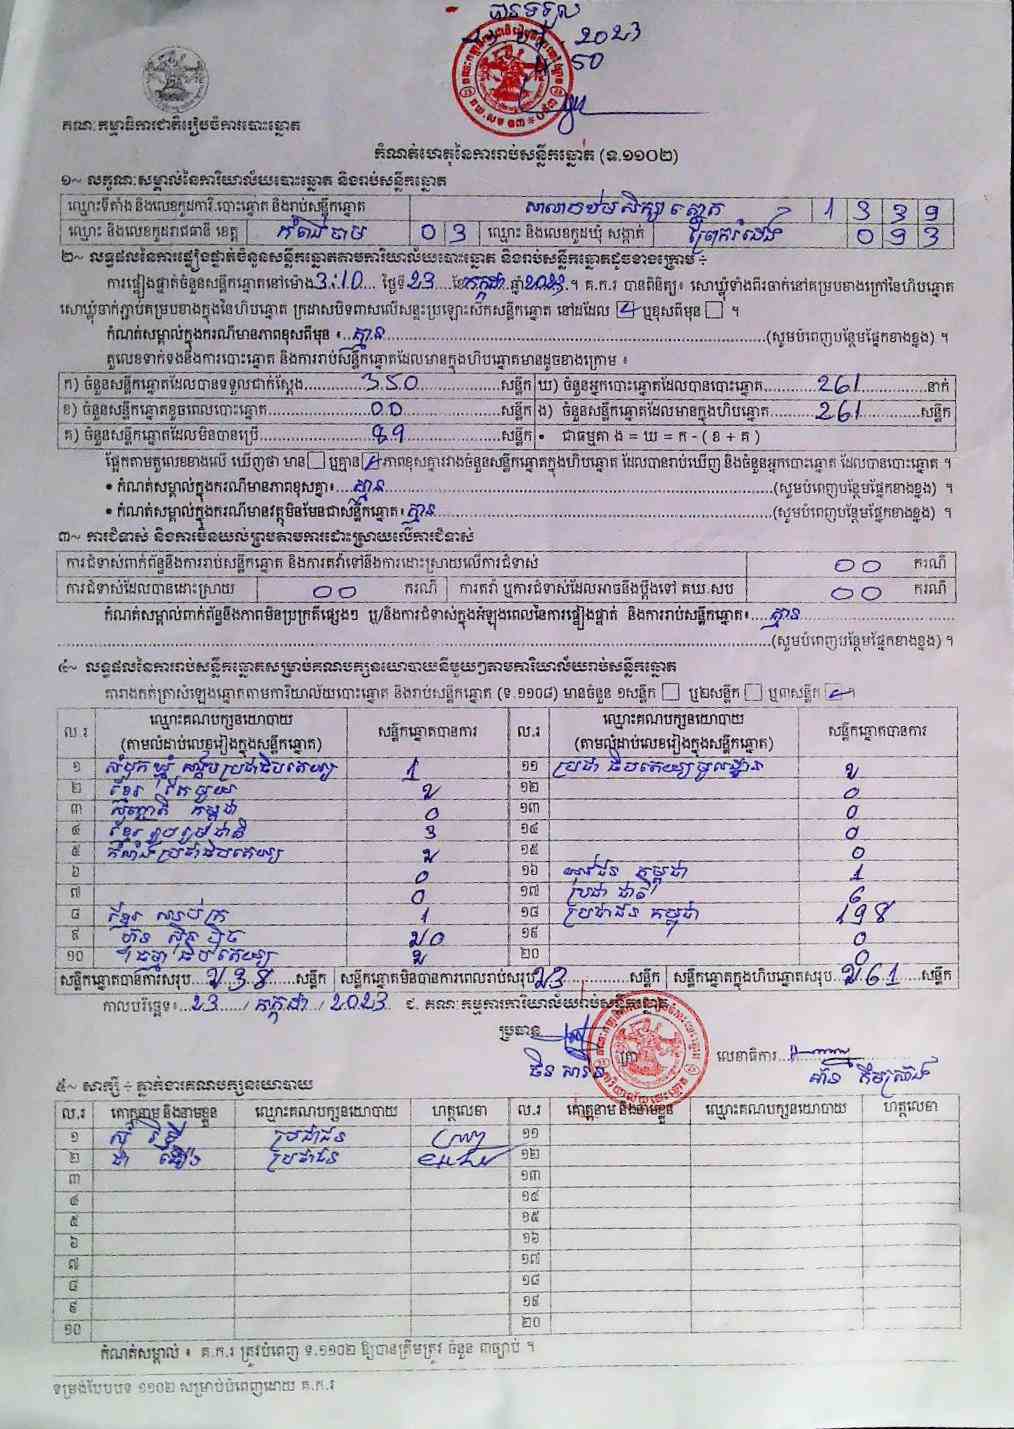 បានទទួល
2023
គណៈកម្មាធិការជាតិរៀបចំការបោះឆ្នោត
កំណត់ហេតុនៃការរាប់សន្លឹកឆ្នោត (ទ.១១០២)
១~ លក្ខណៈសម្គាល់នៃការិយាល័យបោះឆ្នោត និងរាប់សន្លឹកឆ្នោត
ឈ្មោះទីតាំង និងលេខកូដការិ.បោះឆ្នោត និងរាប់សន្លឹកឆ្នោត សាលាបឋមសិក្សា 1 3 3 9
ឈ្មោះ និងលេខកូដរាជធានី ខេត្ត កំពង់ចាម 0 3 ឈ្មោះ និងលេខកូដឃុំ សង្កាត់ 0 9 3
២~ លទ្ធផលនៃការផ្ទៀងផ្ទាត់ចំនួនសន្លឹកឆ្នោតតាមការិយាល័យបោះឆ្នោត និងរាប់សន្លឹកឆ្នោតដូចខាងក្រោម ÷
ការផ្ទៀងផ្ទាត់ចំនួនសន្លឹកឆ្នោតនៅម៉ោង 3:10 ថ្ងៃទី 23 ខែ កក្កដា ឆ្នាំ 2023 ។ គ.ក.រ បានពិនិត្យ៖ សោឃ្មុំទាំងពីរចាក់នៅគម្របខាងក្រៅនៃហិបឆ្នោត
សោឃ្មុំចាក់ភ្ជាប់គម្របខាងក្នុងនៃហិបឆ្នោត ក្រដាសបិទពាសលើសន្ទះប្រឡោះស៊កសន្លឹកឆ្នោត នៅដដែល ☑ ឬខុសពីមុន ☐ ។
កំណត់សម្គាល់ក្នុងករណីមានភាពខុសពីមុន ៖ គ្មាន (សូមបំពេញបន្ថែមផ្នែកខាងខ្នង) ។
តួលេខទាក់ទងនឹងការបោះឆ្នោត និងការរាប់សន្លឹកឆ្នោតដែលមានក្នុងហិបឆ្នោតមានដូចខាងក្រោម ៖
ក) ចំនួនសន្លឹកឆ្នោតដែលបានទទួលជាក់ស្តែង 350 សន្លឹក ឃ) ចំនួនអ្នកបោះឆ្នោតដែលបានបោះឆ្នោត 261 នាក់
ខ) ចំនួនសន្លឹកឆ្នោតខូចពេលបោះឆ្នោត 00 សន្លឹក ង) ចំនួនសន្លឹកឆ្នោតដែលមានក្នុងហិបឆ្នោត 261 សន្លឹក
គ) ចំនួនសន្លឹកឆ្នោតដែលមិនបានប្រើ 89 សន្លឹក • ជាធម្មតា ង = ឃ = ក - ( ខ + គ )
ផ្អែកតាមតួលេខខាងលើ ឃើញថា មាន ☐ ឬគ្មាន ☑ ភាពខុសគ្នារវាងចំនួនសន្លឹកឆ្នោតក្នុងហិបឆ្នោត ដែលបានរាប់ឃើញ និងចំនួនអ្នកបោះឆ្នោត ដែលបានបោះឆ្នោត ។
• កំណត់សម្គាល់ក្នុងករណីមានភាពខុសគ្នា៖ គ្មាន (សូមបំពេញបន្ថែមផ្នែកខាងខ្នង) ។
• កំណត់សម្គាល់ក្នុងករណីមានវត្ថុមិនមែនជាសន្លឹកឆ្នោត៖ គ្មាន (សូមបំពេញបន្ថែមផ្នែកខាងខ្នង) ។
៣~ ការជំទាស់ និងការមិនយល់ព្រមតាមការដោះស្រាយលើការជំទាស់
ការជំទាស់ពាក់ព័ន្ធនឹងការរាប់សន្លឹកឆ្នោត និងការតវ៉ាទៅនឹងការដោះស្រាយលើការជំទាស់ 00 ករណី
ការជំទាស់ដែលបានដោះស្រាយ 00 ករណី ការតវ៉ា ឬការជំទាស់ដែលអាចនឹងប្តឹងទៅ គឃ.សប 00 ករណី
កំណត់សម្គាល់ពាក់ព័ន្ធនឹងភាពមិនប្រក្រតីផ្សេងៗ ឬ/និងការជំទាស់ក្នុងអំឡុងពេលនៃការផ្ទៀងផ្ទាត់ និងការរាប់សន្លឹកឆ្នោត៖ គ្មាន
(សូមបំពេញបន្ថែមផ្នែកខាងខ្នង) ។
៤~ លទ្ធផលនៃការរាប់សន្លឹកឆ្នោតសម្រាប់គណបក្សនយោបាយនីមួយៗតាមការិយាល័យរាប់សន្លឹកឆ្នោត
តារាងកត់ត្រាសំឡេងឆ្នោតតាមការិយាល័យបោះឆ្នោត និងរាប់សន្លឹកឆ្នោត (ទ.១១០៨) មានចំនួន ១សន្លឹក ☐ ឬ២សន្លឹក ☐ ឬ៣សន្លឹក ☑ ។
ល.រ ឈ្មោះគណបក្សនយោបាយ (តាមលំដាប់លេខរៀងក្នុងសន្លឹកឆ្នោត) សន្លឹកឆ្នោតបានការ ល.រ ឈ្មោះគណបក្សនយោបាយ (តាមលំដាប់លេខរៀងក្នុងសន្លឹកឆ្នោត) សន្លឹកឆ្នោតបានការ
១ សំបុកឃ្មុំ សង្គមប្រជាធិបតេយ្យ 1 ១១ ប្រជាធិបតេយ្យមូលដ្ឋាន ២
២ ខ្មែរ រួបរួម ២ ១២ 0
៣ សញ្ជាតិ កម្ពុជា 0 ១៣ 0
៤ ខ្មែរ រួបរួមជាតិ 3 ១៤ 0
៥ កម្លាំងប្រជាធិបតេយ្យ ២ ១៥ 0
៦ 0 ១៦ យុវជន កម្ពុជា 1
៧ 0 ១៧ 6
៨ ខ្មែរ ឈប់ក្រ 1 ១៨ ប្រជាជន កម្ពុជា 198
៩ ហ៊្វុនស៊ិនប៉ិច ២0 ១៩ 0
១០ ធម្មាធិបតេយ្យ ២ 20 0
សន្លឹកឆ្នោតបានការសរុប ២38 សន្លឹក សន្លឹកឆ្នោតមិនបានការពេលរាប់សរុប ២3 សន្លឹក សន្លឹកឆ្នោតក្នុងហិបឆ្នោតសរុប ២61 សន្លឹក
កាលបរិច្ឆេទ៖ 23 / កក្កដា / 2023 ជ. គណៈកម្មការការិយាល័យរាប់សន្លឹកឆ្នោត
ប្រធាន លេខាធិការ
៥~ សាក្សី ÷ ភ្នាក់ងារគណបក្សនយោបាយ
ល.រ គោត្តនាម និងនាមខ្លួន ឈ្មោះគណបក្សនយោបាយ ហត្ថលេខា ល.រ គោត្តនាម និងនាមខ្លួន ឈ្មោះគណបក្សនយោបាយ ហត្ថលេខា
១ ប្រជាជន ១១
២ ប្រជាជន ១២
៣ ១៣
៤ ១៤
៥ ១៥
៦ ១៦
៧ ១៧
៨ ១៨
៩ ១៩
១០ 20
កំណត់សម្គាល់ ៖ គ.ក.រ ត្រូវបំពេញ ទ.១១០២ ឱ្យបានត្រឹមត្រូវ ចំនួន ៣ច្បាប់ ។
ទម្រង់បែបបទ ១១០២ សម្រាប់បំពេញដោយ គ.ក.រ